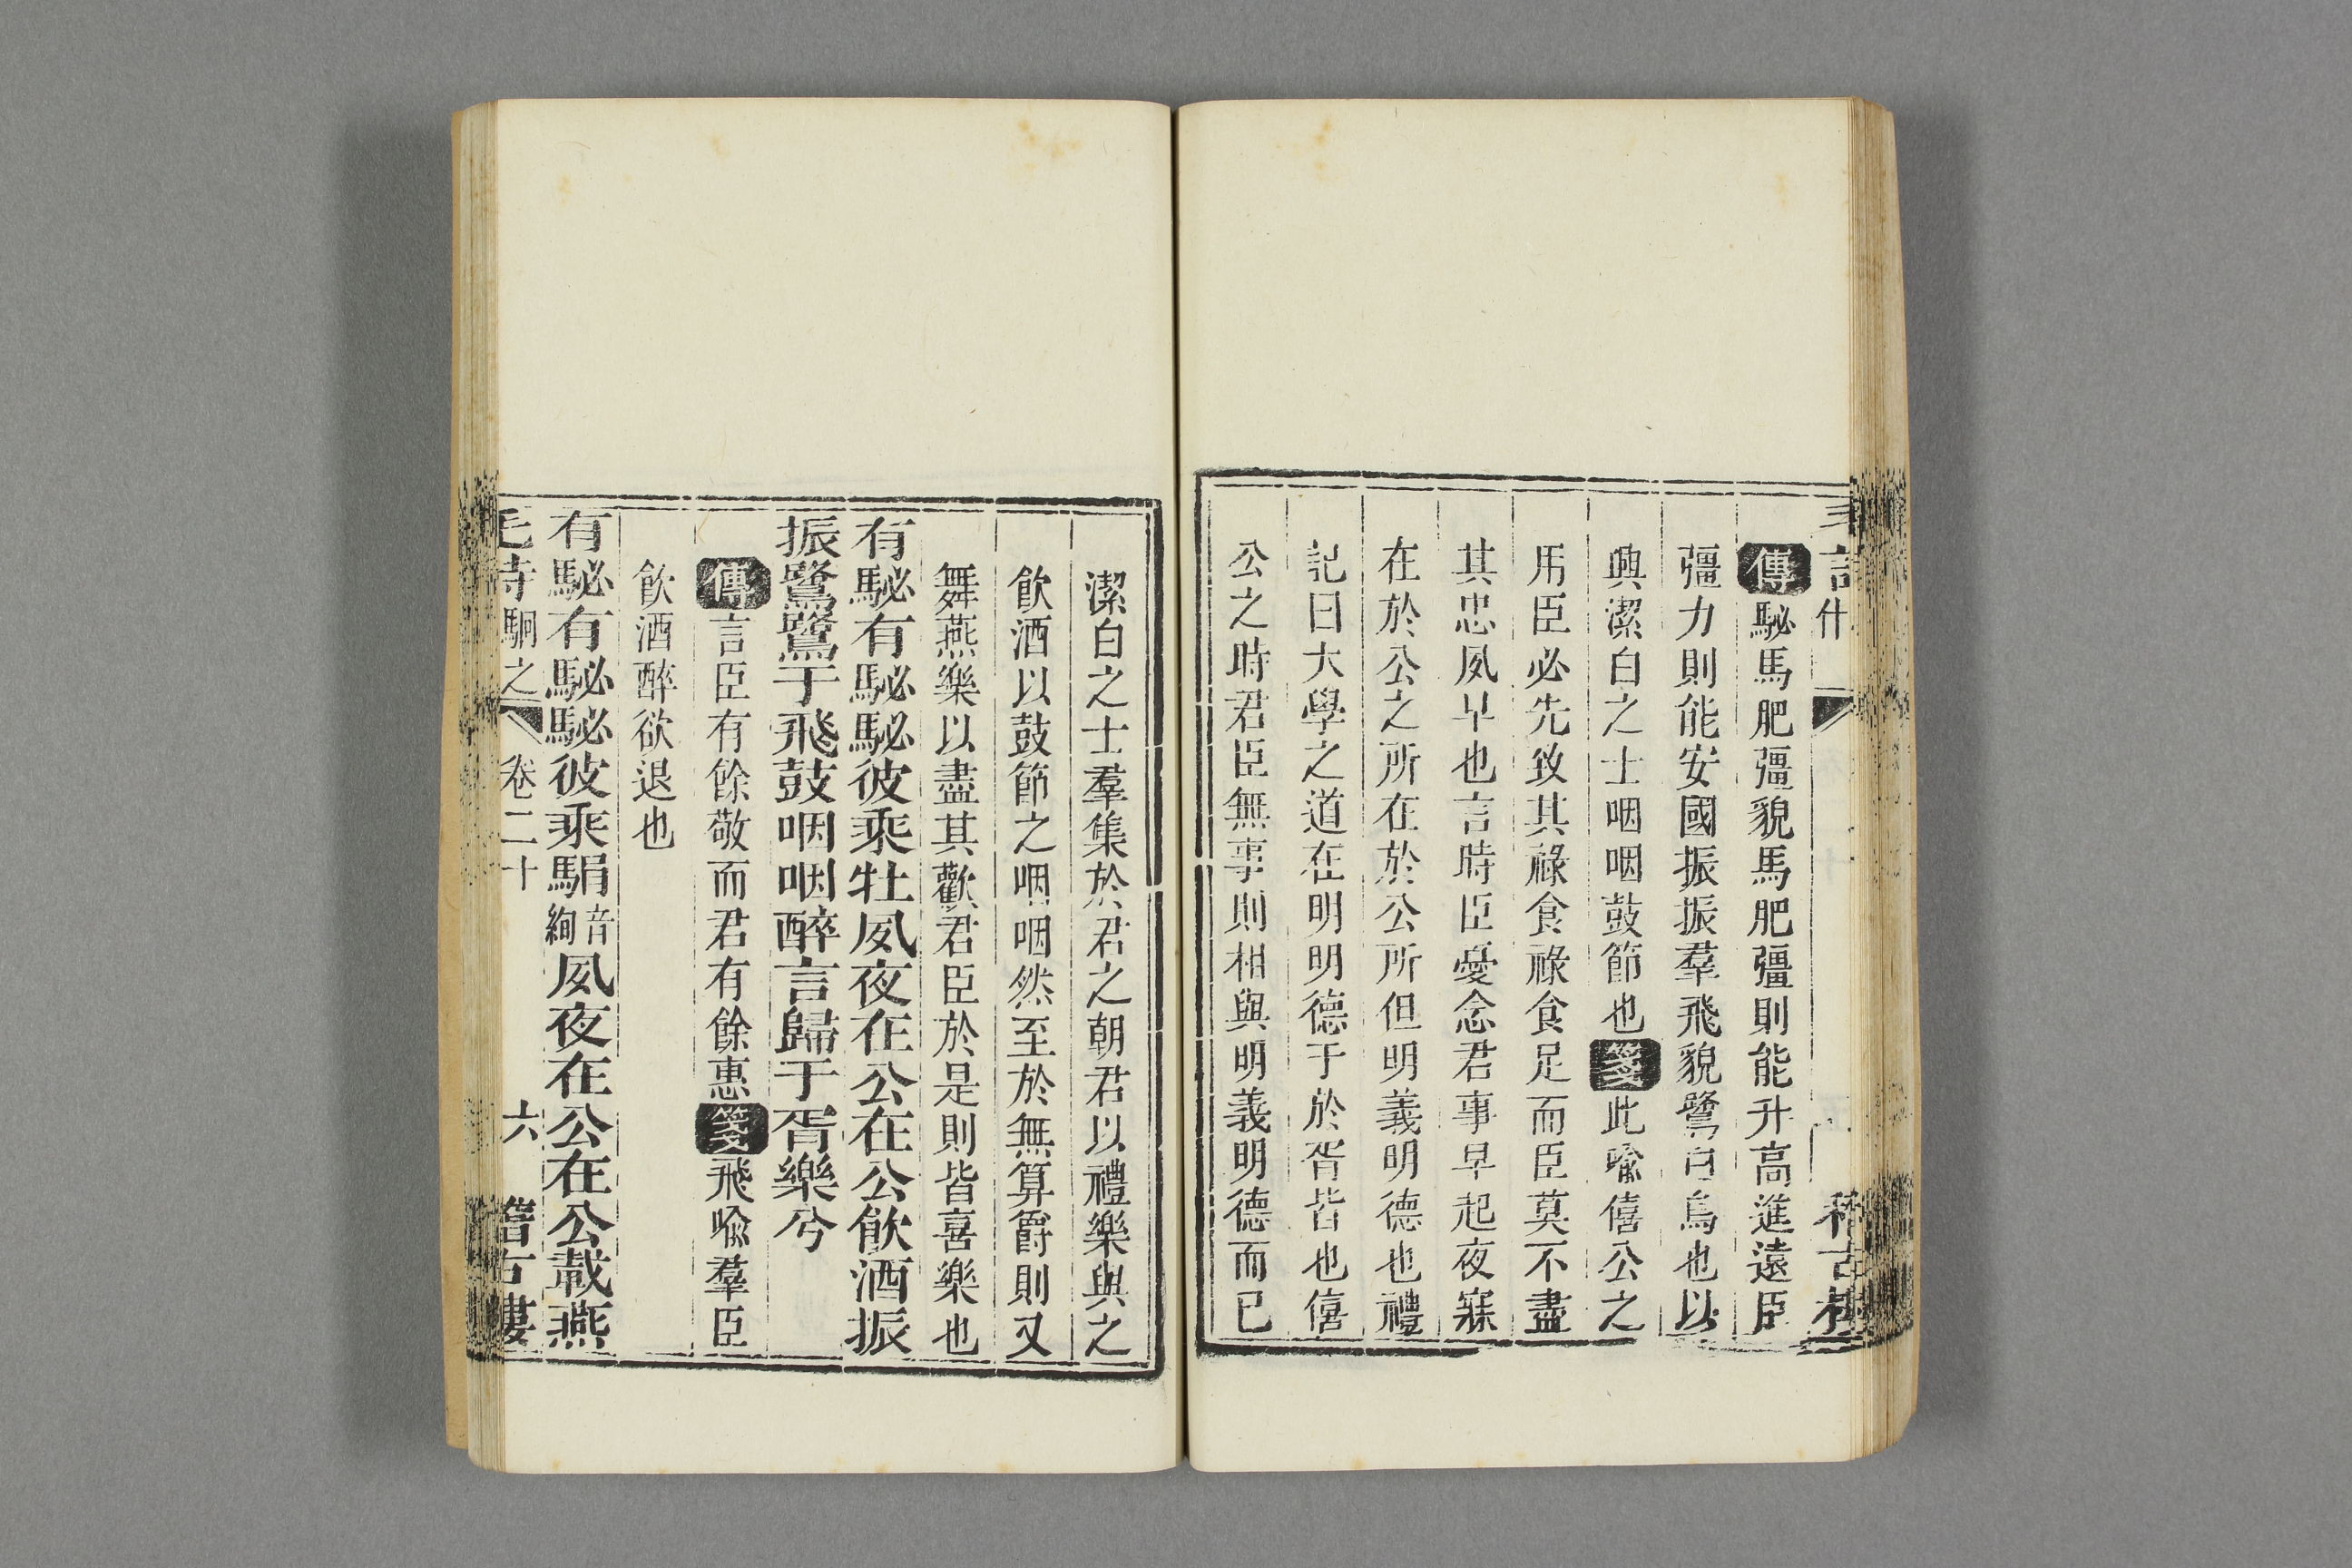 傳駜馬肥彊貌馬肥彊則能升高進遠臣
彊力則能安國振振羣飛貌鷺白鳥也以
興潔白之士咽咽鼓節也箋此喩僖公之
用臣必先致其祿食祿食足而臣莫不盡
其忠夙早也言時臣憂念君事早起夜寐
在於公之所在於公所但明義明德也禮
記曰大學之道在明明德于於胥皆也僖
公之時君臣無事則相與明義明德而已
潔白之士羣集於君之朝君以禮樂與之
飮酒以鼓節之咽咽然至於無算爵則又
舞燕樂以盡其歡君臣於是則皆喜樂也
有駜有駜駜彼乘牡夙夜在公在公飮酒振
振鷺鷺于飛鼓咽咽醉言歸于胥樂兮
傳言臣有餘敬而君有餘惠箋飛喩羣臣
飮酒醉欲退也
有駜有駜駜彼乘駽音絢夙夜在公在公載燕
毛詩駉之 卷二十 六 稽古樓